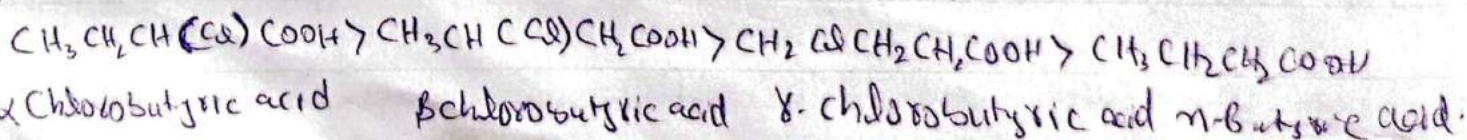 CH₃CH₂CH(Cl)COOH > CH₃CH(Cl)CH₂COOH > CH₂ClCH₂CH₂COOH > CH₃CH₂CH₂COOH
α Chlorobutyric acid β chlorobutyric acid γ-chlorobutyric acid n-Butyric acid.